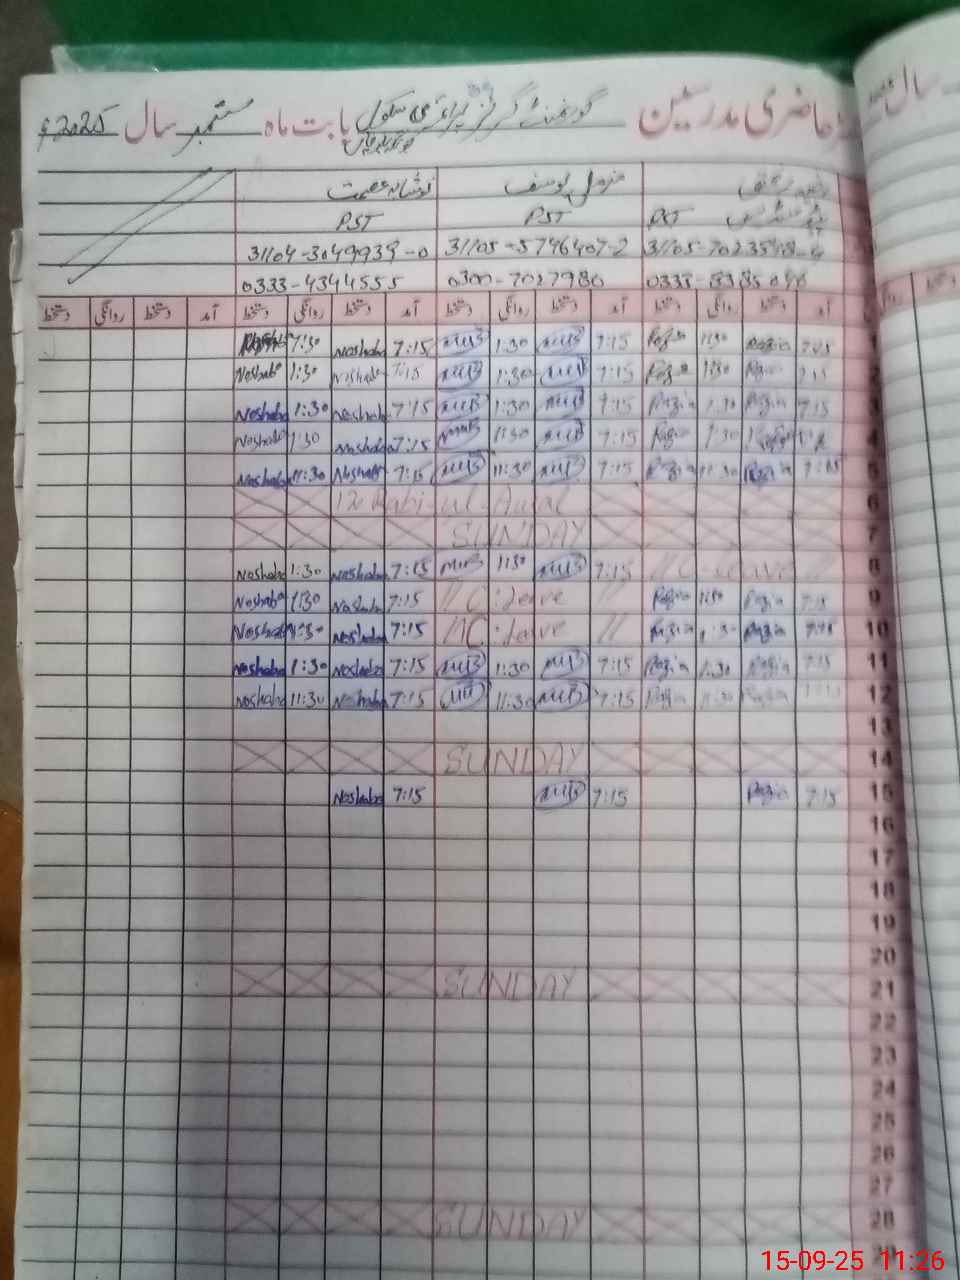 حاضری مدرسین گورنمنٹ گرلز پرائمری سکول بابت ماہ ستمبر سال 2025ء
سال
منزمل یوسف نوشابہ عصمت
PST PST PST
31105-5746407-2 31104-3049939-0
0300-7027980 0333-4344555
آمد دستخط روانگی دستخط آمد دستخط روانگی دستخط آمد دستخط روانگی دستخط آمد دستخط روانگی دستخط
1 7:15 Razia 1:30 Razia 7:15 MUB 1:30 MUB 7:15 Noshaba 1:30
2 7:15 Razia 1:30 Razia 7:15 MUB 1:30 MUB 7:15 Noshaba 1:30 Noshaba
3 7:15 Razia 1:30 Razia 7:15 MUB 1:30 MUB 7:15 Noshaba 1:30 Noshaba
4 1:30 Razia 7:15 MUB 1:30 MUB 7:15 Noshaba 1:30 Noshaba
5 7:15 Razia 11:30 Razia 7:15 MUB 11:30 MUB 7:15 Noshaba 11:30 Noshaba
6 12 Rabi-ul-Awal
7 SUNDAY
8 // C-Leave // 7:15 MUB 1:30 MUB 7:15 Noshaba 1:30 Noshaba
9 7:15 Razia 1:30 Razia // C-Leave // 7:15 Noshaba 1:30 Noshaba
10 7:15 Razia 1:30 Razia // C-Leave // 7:15 Noshaba 1:30 Noshaba
11 7:15 Razia 1:30 Razia 7:15 MUB 1:30 MUB 7:15 Noshaba 1:30 Noshaba
12 7:15 Razia 11:30 Razia 7:15 MUB 11:30 MUB 7:15 Noshaba 11:30 Noshaba
13
14 SUNDAY
15 7:15 Razia 7:15 MUB 7:15 Noshaba
16
17
18
19
20
21 SUNDAY
22
23
24
25
26
27
28 SUNDAY
15-09-25 11:26